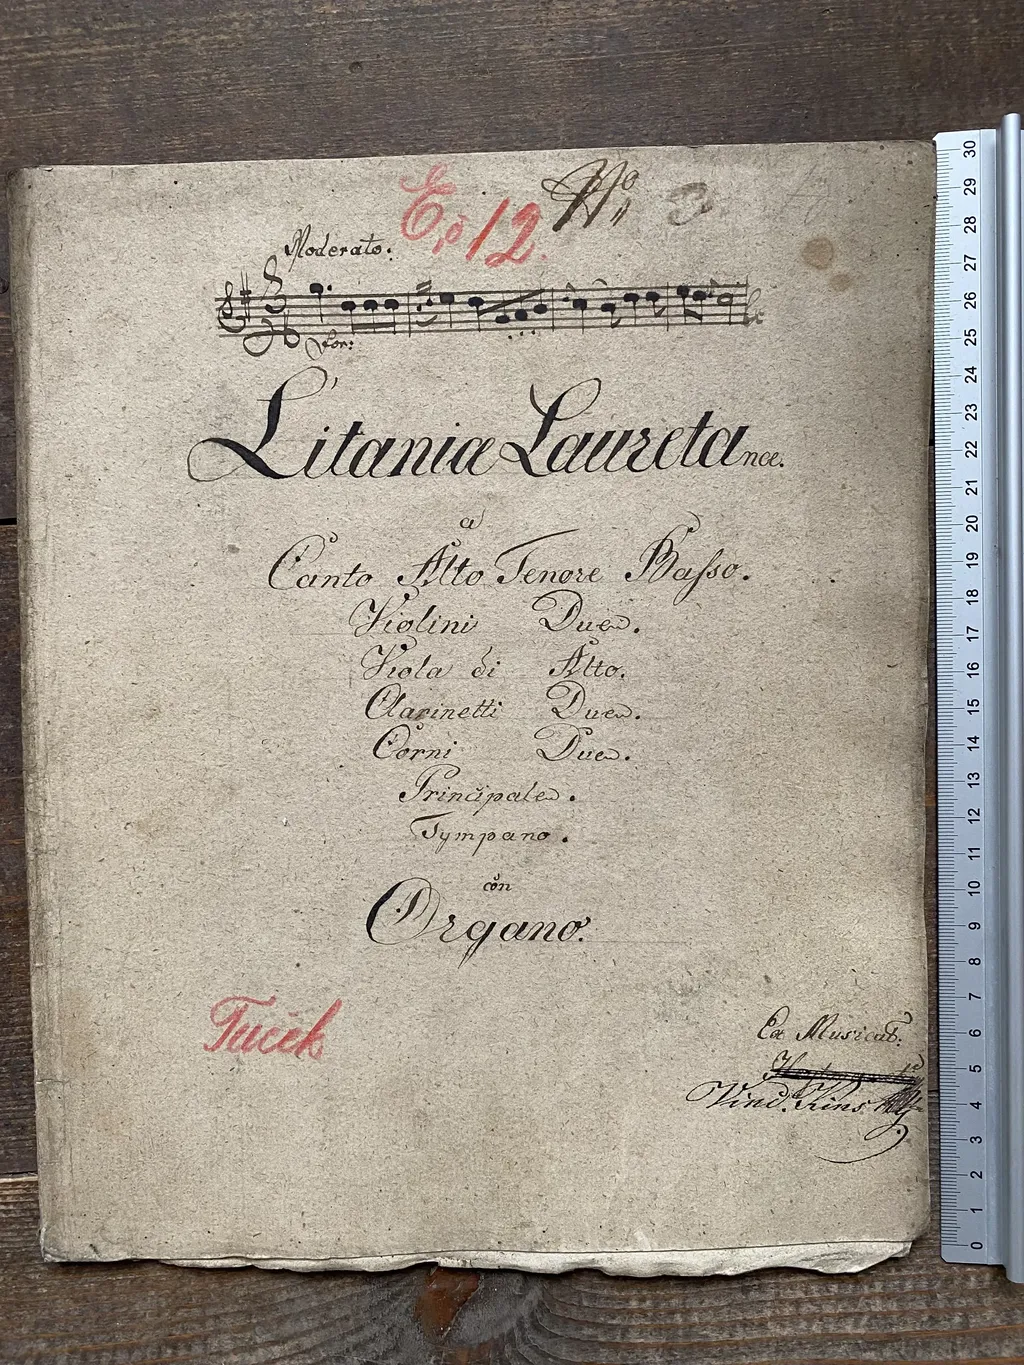 E, 12. No 3
Moderato.
for:
Litaniæ Lauretanæ.
a
Canto Alto Tenore Basso.
Violini Due.
Viola di Alto.
Clarinetti Due.
Corni Due.
Principale.
Tympano.
con
Organo.
Tuček
Ex Musicab:
Vind. Kins
30
29
28
27
26
25
24
23
22
21
20
19
18
17
16
15
14
13
12
11
10
9
8
7
6
5
4
3
2
1
0